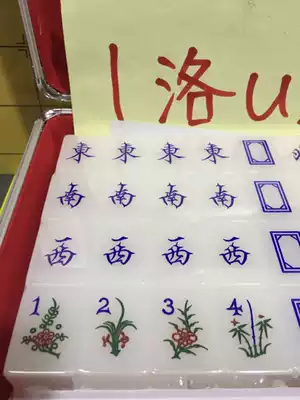 1洛u
東 東 東 東
南 南 南 南
西 西 西 西
1 2 3 4